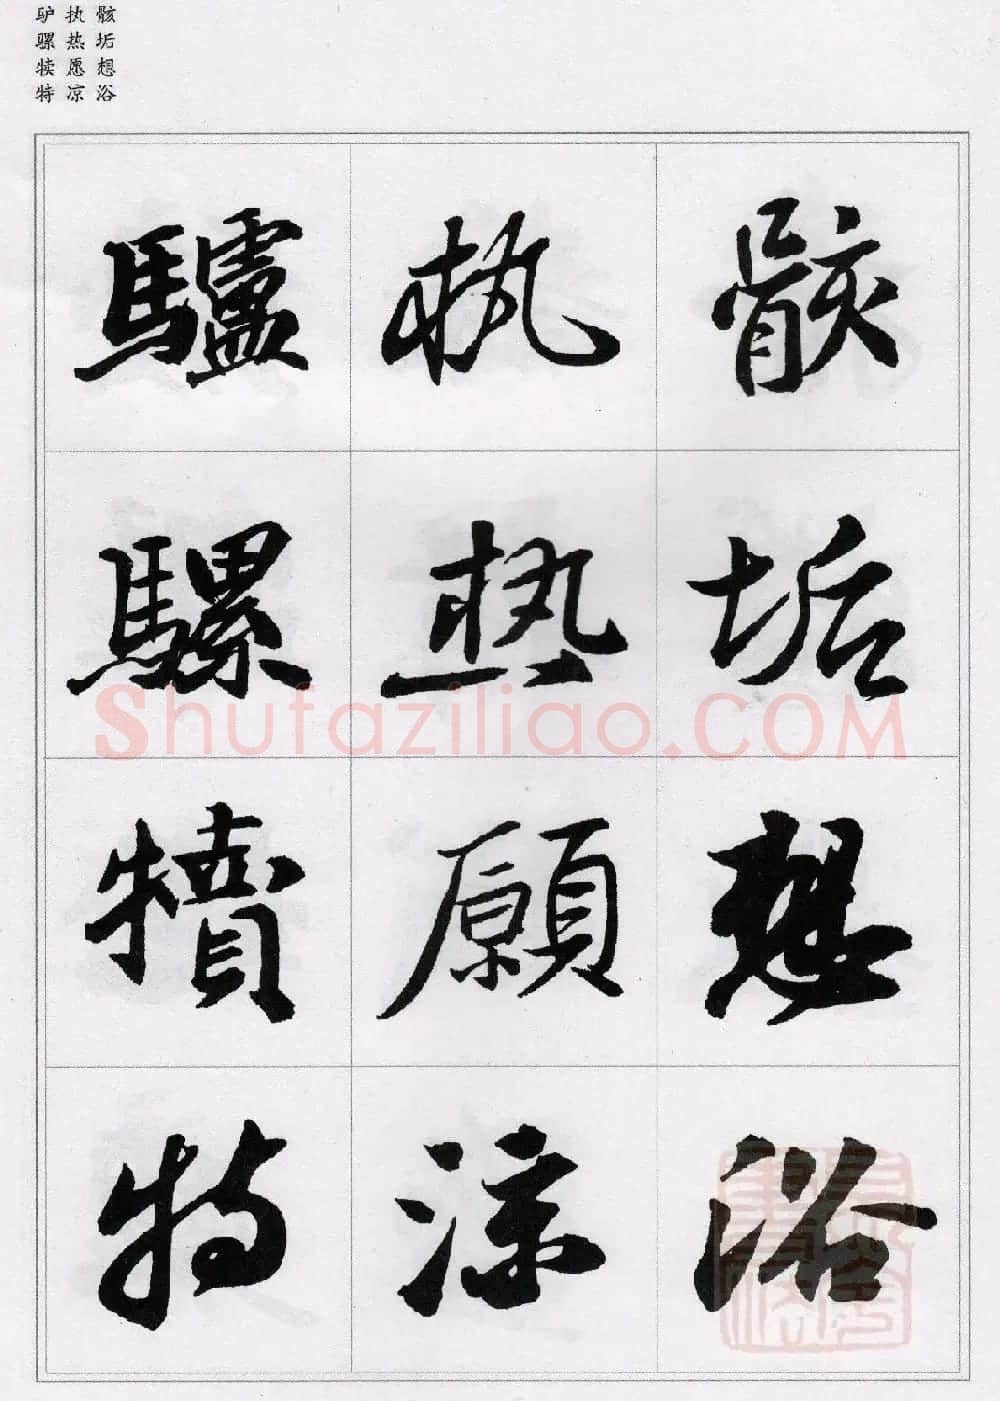 骸垢想浴
执热愿凉
驴骡犊特
骸垢想浴
执热願凉
驢騾犢特
Shufaziliao.COM